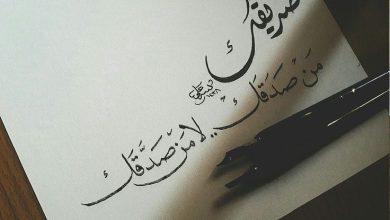 صديقك
مَن صَدَقَك .. لا مَن صَدَّقَك